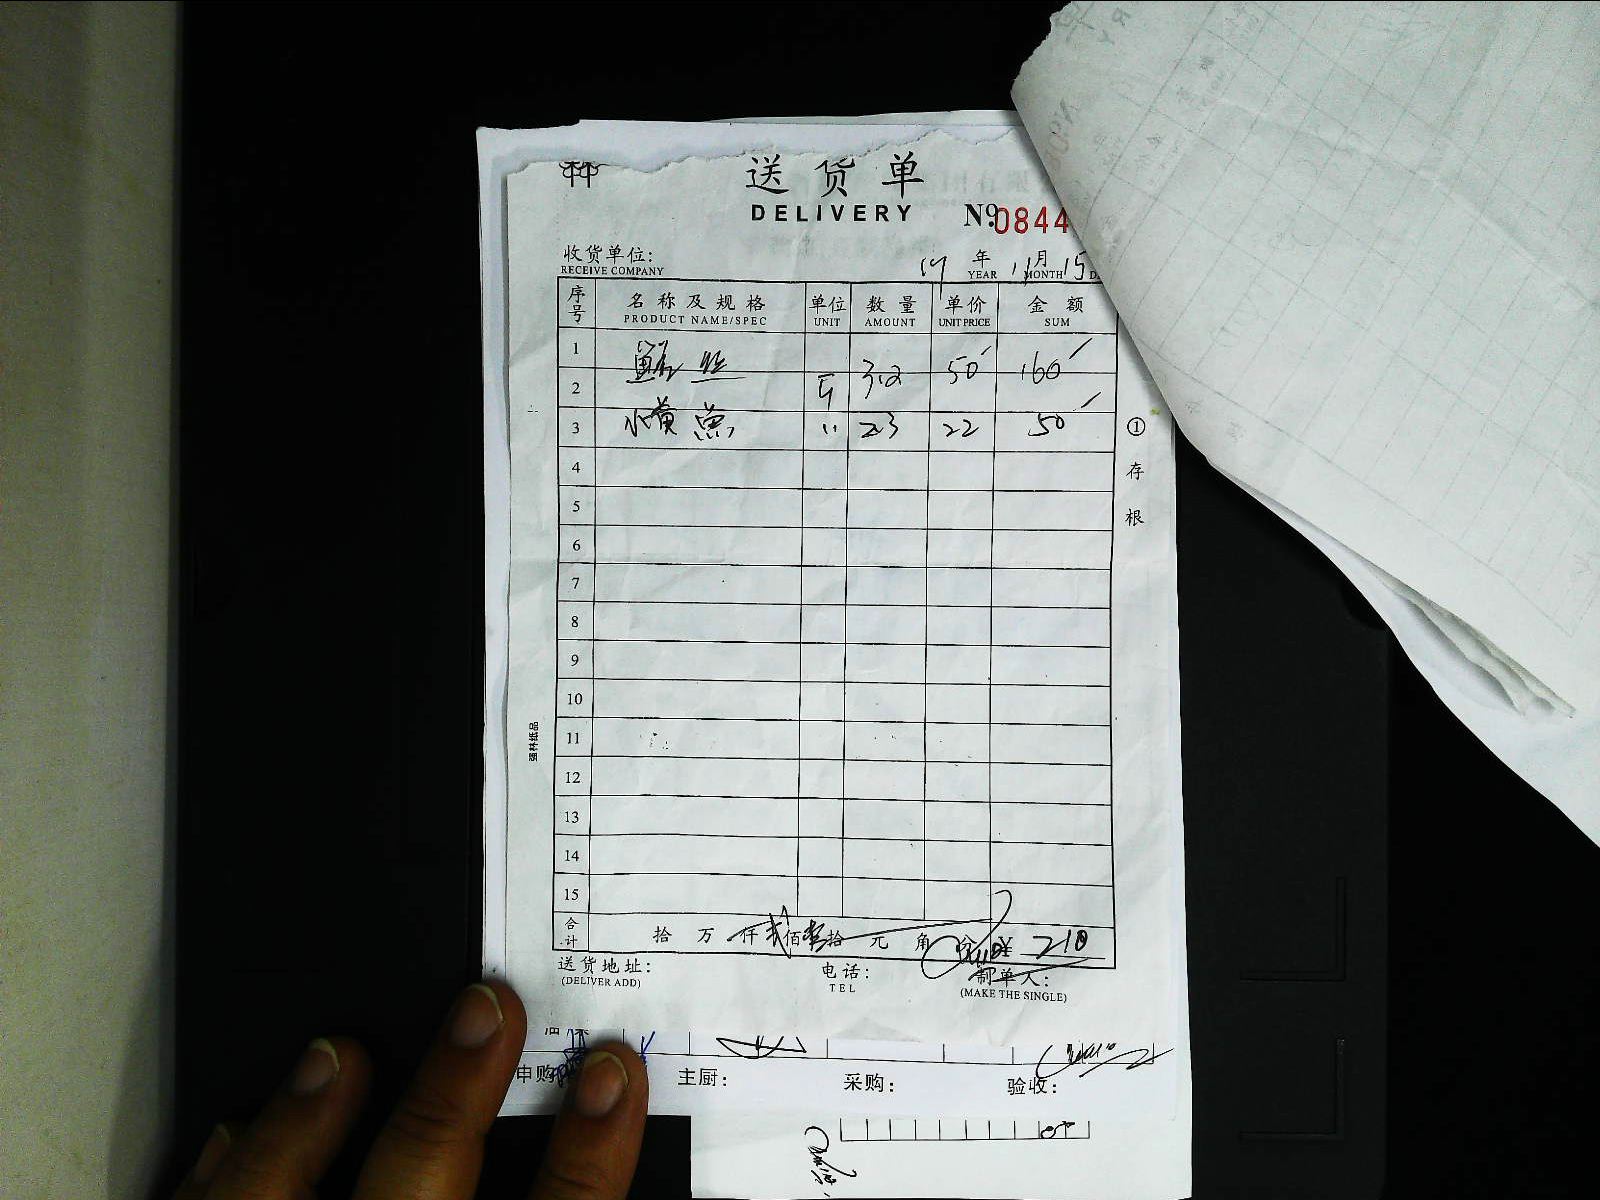 送货单
DELIVERY
№ 0844
收货单位:
RECEIVE COMPANY
年 11月 15
YEAR MONTH
序号 名称及规格 单位 数量 单价 金额
PRODUCT NAME/SPEC UNIT AMOUNT UNIT PRICE SUM
1 50 160
2 斤 3.2
3 水黄魚 " 23 22 50
4
5
6
7
8
9
10
11
12
13
14
15
合计 拾 万 仟 贰佰壹拾 元 角 分 ¥ 210
送货地址: 电话: 制单人:
(DELIVER ADD) TEL (MAKE THE SINGLE)
①存根
强林纸品
申购 主厨: 采购: 验收: